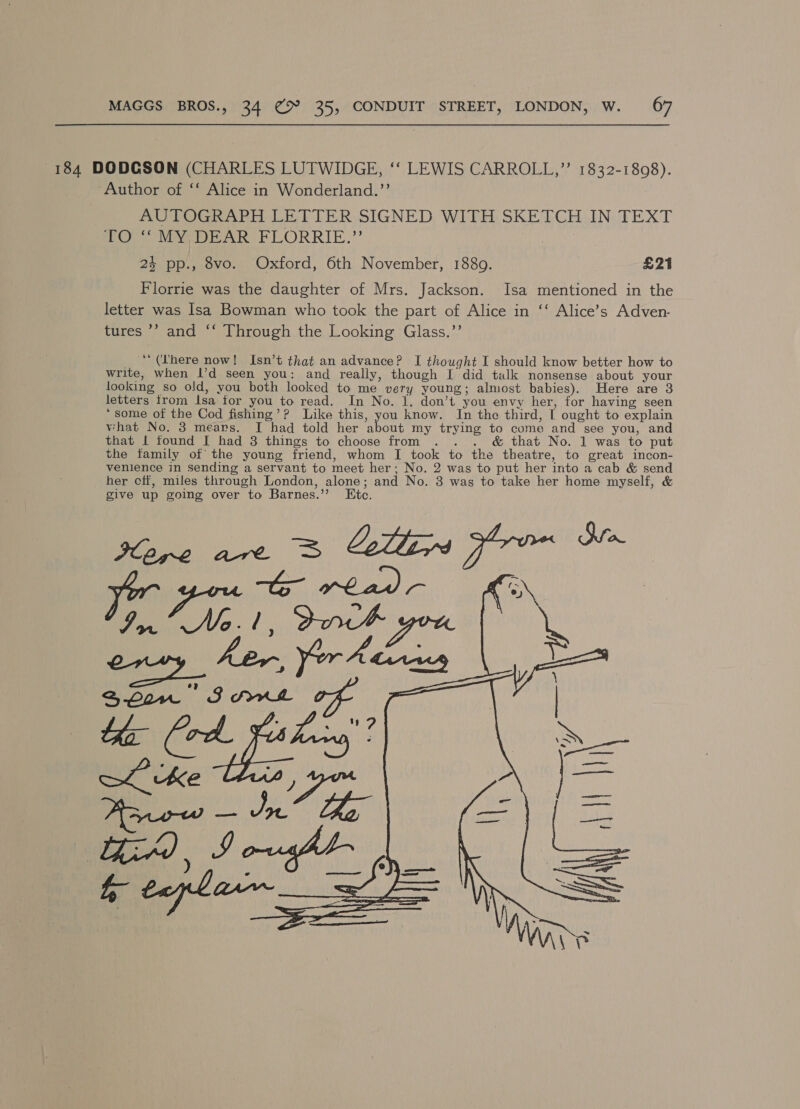 MAGGS BROS., 34 & 35, CONDUIT STREET, LONDON, W. 67
184 DODGSON (CHARLES LUTWIDGE, “ LEWIS CARROLL,” 1832-1898).
Author of “ Alice in Wonderland.”
AUTOGRAPH LETTER SIGNED WITH SKETCH IN TEXT
TO “ MY DEAR FLORRIE.”
2½ pp., 8vo. Oxford, 6th November, 1889. £21
Florrie was the daughter of Mrs. Jackson. Isa mentioned in the
letter was Isa Bowman who took the part of Alice in “ Alice’s Adven-
tures ” and “ Through the Looking Glass.”
“ (There now! Isn’t that an advance? I thought I should know better how to
write, when I’d seen you: and really, though I did talk nonsense about your
looking so old, you both looked to me very young; almost babies). Here are 3
letters from Isa for you to read. In No. 1, don’t you envy her, for having seen
‘ some of the Cod fishing ’? Like this, you know. In the third, I ought to explain
what No. 3 means. I had told her about my trying to come and see you, and
that I found I had 3 things to choose from . . . & that No. 1 was to put
the family of the young friend, whom I took to the theatre, to great incon-
venience in sending a servant to meet her; No. 2 was to put her into a cab & send
her off, miles through London, alone; and No. 3 was to take her home myself, &
give up going over to Barnes.” Etc.
Here are 3 letters from Isa
for you to read.
In No. 1, don't you
envy her, for having
seen "some of
the Cod fishing"?
Like this, you
know — In the
third, I ought
to explain